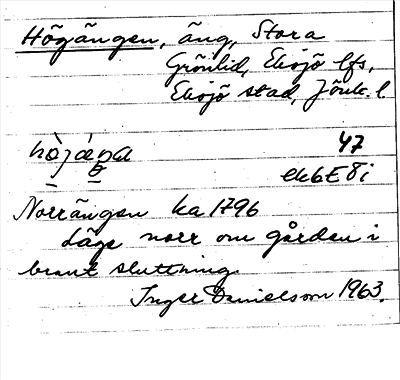 Högängen, äng, Stora
Grönlid, Eksjö lfs,
Eksjö stad, Jönk. l.
47
ek6E8i
Norrängen ka 1796
Läge norr om gården i
brant sluttning.
Inger Danielsson 1963.